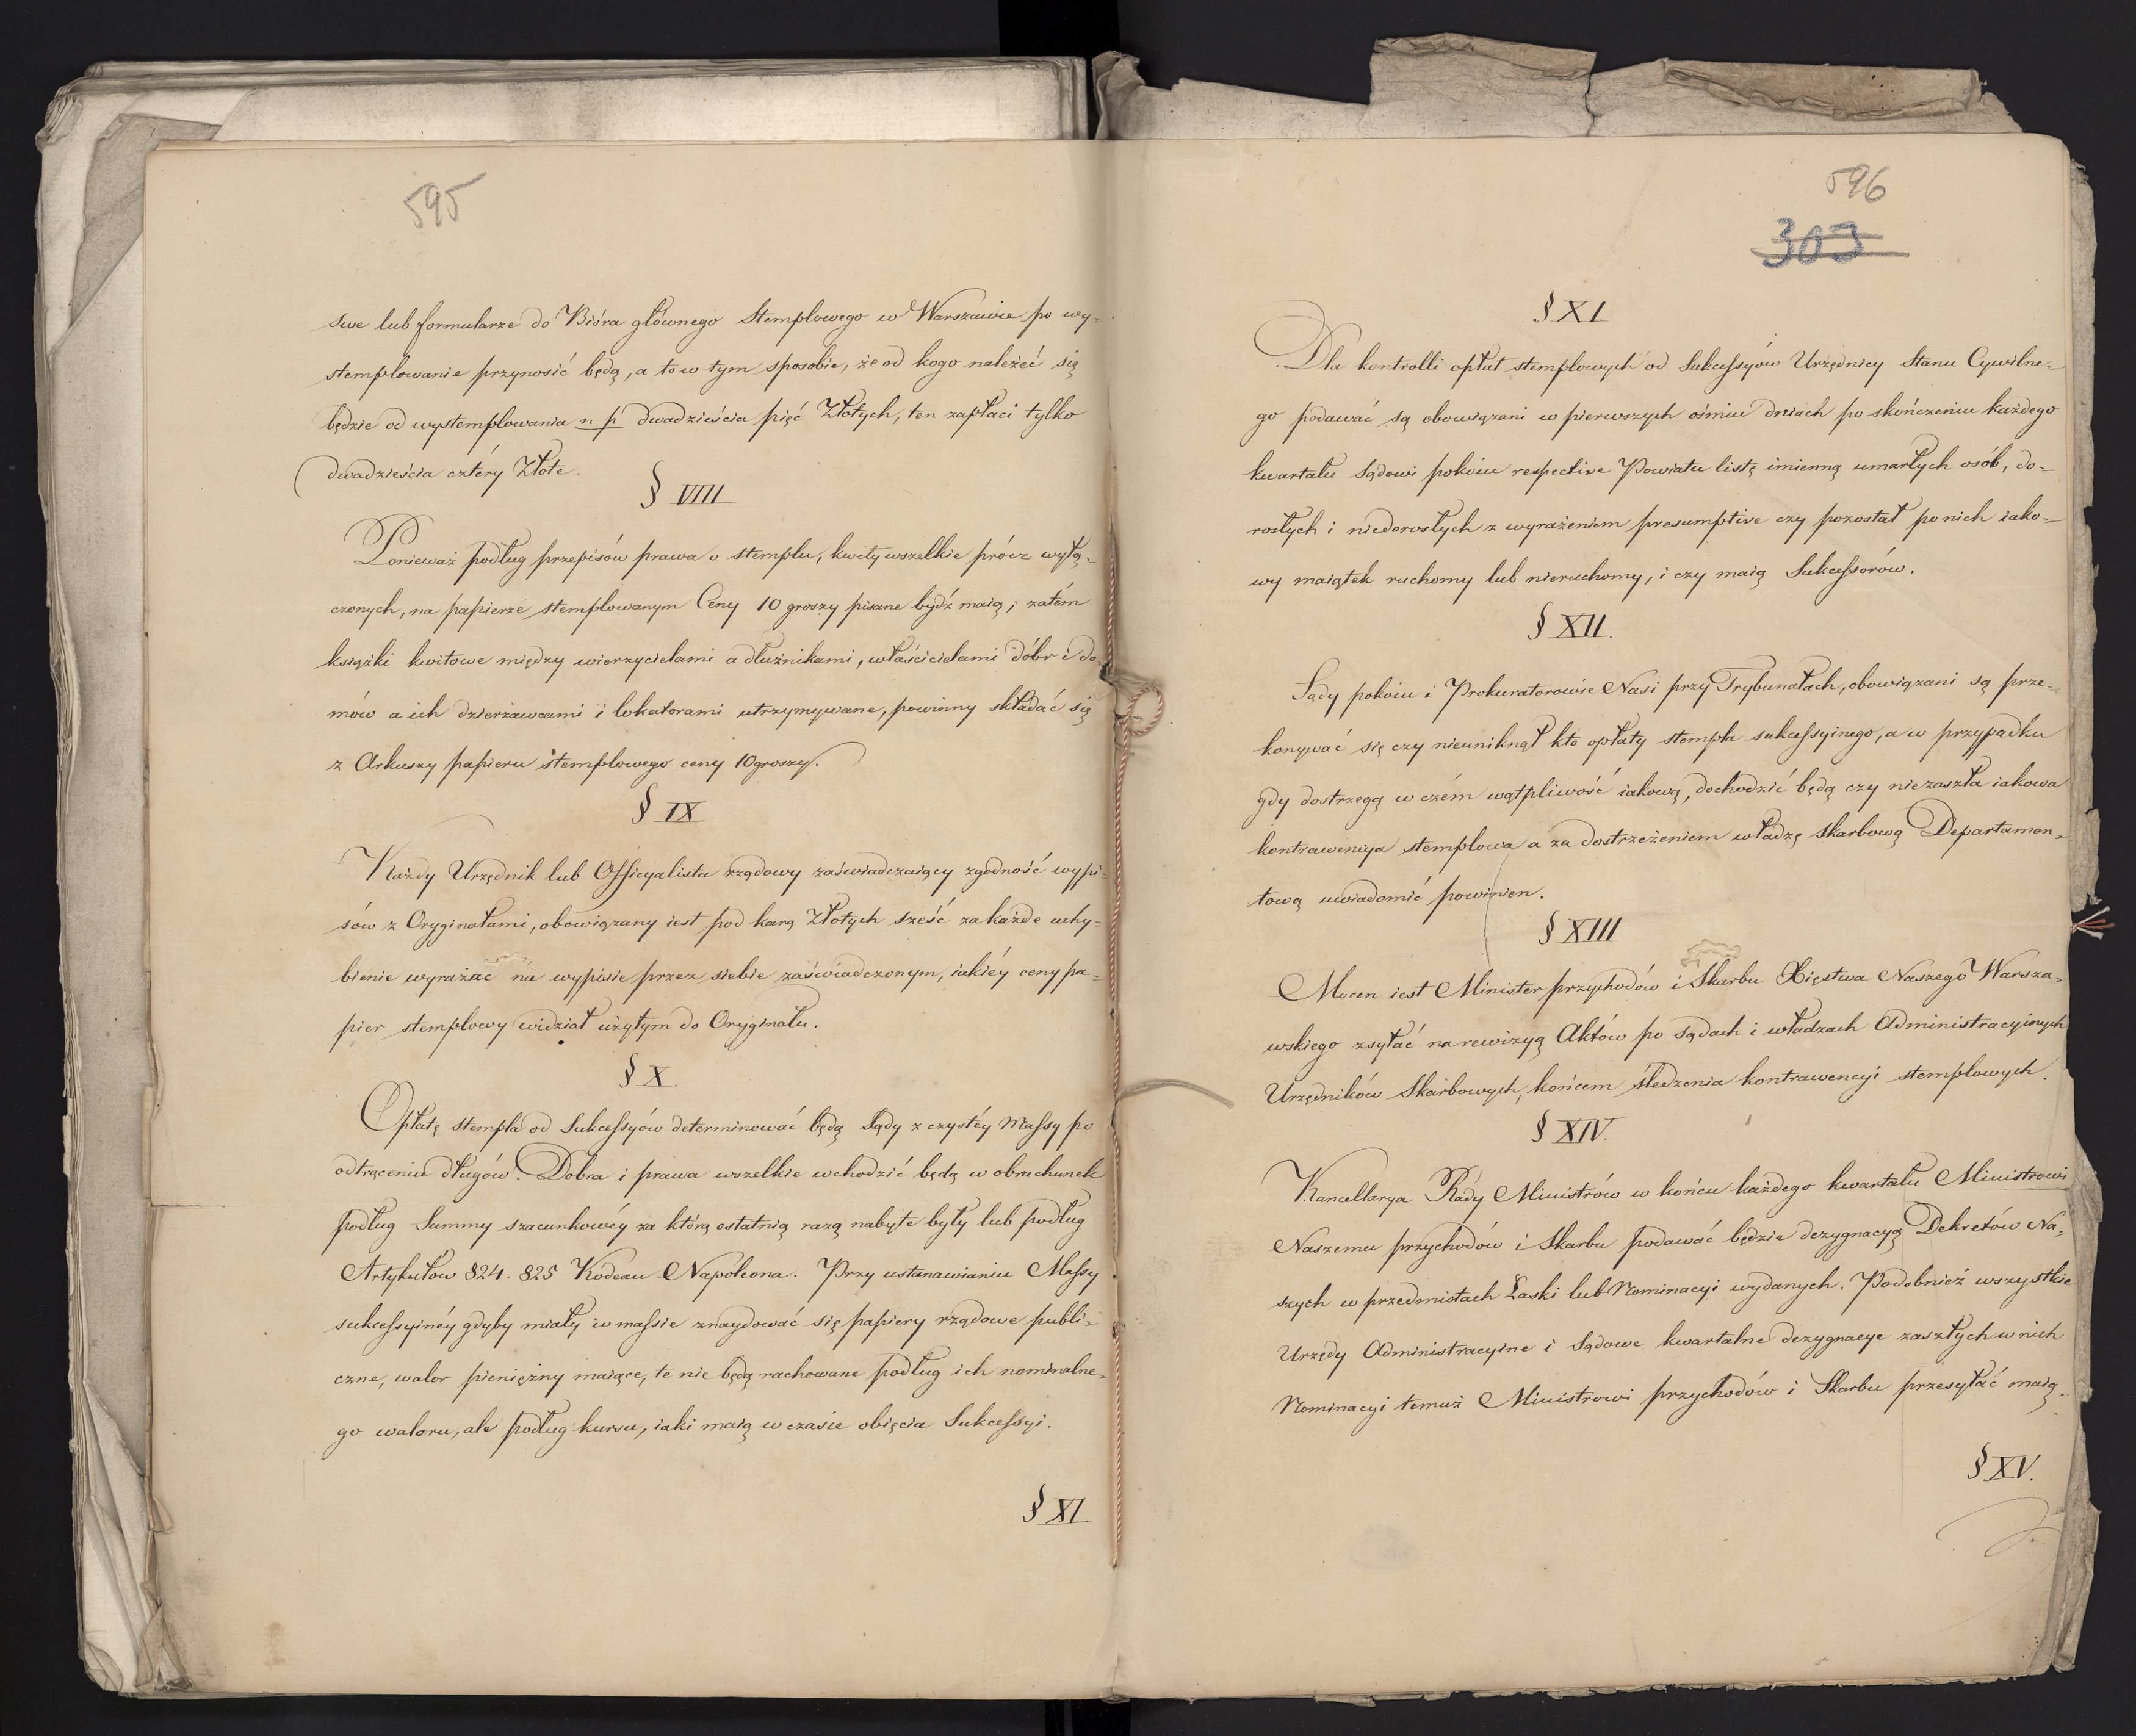 595
swe lub formularze do Bióra głównego Stemplowego w Warszawie po wy-
stemplowanie przynosić będą, a to w tym sposobie, że od kogo należeć się
będzie od wystemplowania n p dwadzieścia pięć Złotych, ten zapłaci tylko
dwadzieścia cztéry Złote.
§ VIII
Ponieważ podług przepisów prawa o stemplu, kwity wszelkie prócz wyłą-
czonych, na papierze stemplowanym Ceny 10 groszy pisane bydź maią; zatém
książki kwitowe między wierzycielami a dłużnikami, właścicielami dóbr i do-
mów a ich dzierżawcami i lokatorami utrzymywane, powinny składać się
z Arkuszy papieru stemplowego ceny 10 groszy.
§ IX
Każdy Urzędnik lub Officyalista rządowy zaświadczaiący zgodność wypi-
sów z Oryginałami, obowiązany iest pod karą Złotych sześć za każde uchy-
bienie wyrażać na wypisie przez siebie zaświadczonym, iakiéy ceny pa-
pier stemplowy widział użytym do Oryginału.
§ X.
Opłatę stempla od Sukcessyów determinować będą Sądy z czystéy Massy po
odtrąceniu długów. Dobra i prawa wszelkie wchodzić będą w obrachunek
podług Summy szacunkowéy za którą ostatnią razą nabyte były lub podług
Artykułów 824. 825 Kodexu Napoleona. Przy ustanawianiu Massy
sukcessyinéy gdyby miały w massie znaydować się papiery rządowe publi-
czne, walor pieniężny maiące, te nie będą rachowane podług ich nominalne-
go waloru, ale podług kursu, iaki maią w czasie obięcia Sukcessyi.
§ XI
596
303
§ XI
Dla kontrolli opłat stemplowych od Sukcessyów Urzędnicy Stanu Cywilne-
go podawać są obowiązani w pierwszych ośmiu dniach po skończeniu każdego
kwartału Sądowi pokoiu respective Powiatu listę imienną umarłych osób, do-
rosłych i niedorosłych z wyrażeniem presumptive czy pozostał po nich iako-
wy maiątek ruchomy lub nieruchomy, i czy maią Sukcessorów.
§ XII.
Sądy pokoiu i Prokuratorowie Nasi przy Trybunałach, obowiązani są prze-
konywać się czy nieuniknął kto opłaty stempla sukcessyinego, a w przypadku
gdy dostrzegą w czém wątpliwość iakową, dochodzić będą czy niezaszła iakowa
kontrawencya stemplowa a za dostrzeżeniem władzę skarbową Departamen-
tową uwiadomić powinien.
§ XIII
Mocen iest Minister przychodów i Skarbu Xięstwa Naszego Warsza-
wskiego zsyłać na rewizyą Aktów po sądach i władzach Administracyinych
Urzędników Skarbowych, końcem śledzenia kontrawencyi stemplowych.
§ XIV.
Kancellarya Rady Ministrów w końcu każdego kwartału Ministrowi
Naszemu przychodów i Skarbu podawać będzie dezygnacyą Dekretów Na-
szych w przedmiotach Łaski lub Nominacyi wydanych. Podobnież wszystkie
Urzędy Administracyine i Sądowe kwartalne dezygnacye zaszłych w nich
Nominacyi temuż Ministrowi przychodów i Skarbu przesyłać maią.
§ XV.